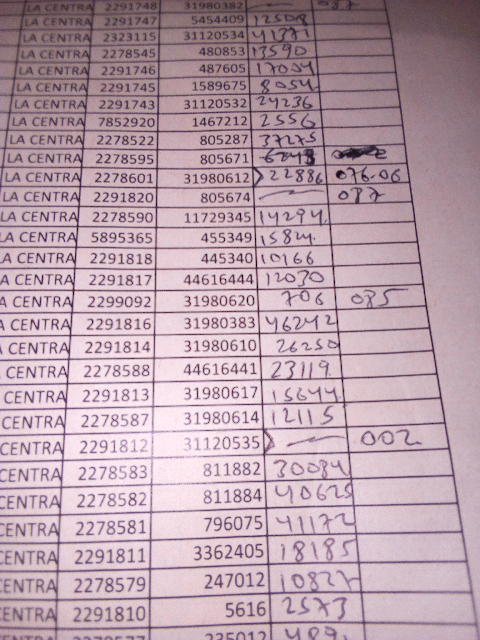 LA CENTRA 2291748 31980382 — 087
LA CENTRA 2291747 5454409 12508
LA CENTRA 2323115 31120534 41371
LA CENTRA 2278545 480853 13590
LA CENTRA 2291746 487605 17004
LA CENTRA 2291745 1589675 8054
LA CENTRA 2291743 31120532 24236
LA CENTRA 7852920 1467212 2556
LA CENTRA 2278522 805287 37275
LA CENTRA 2278595 805671
LA CENTRA 2278601 31980612 22886 076.06
LA CENTRA 2291820 805674 — 087
LA CENTRA 2278590 11729345 14294
LA CENTRA 5895365 455349 15824
LA CENTRA 2291818 445340 10166
LA CENTRA 2291817 44616444 12030
A CENTRA 2299092 31980620 706 085
A CENTRA 2291816 31980383 46242
A CENTRA 2291814 31980610 26250
A CENTRA 2278588 44616441 23119
A CENTRA 2291813 31980617 15644
CENTRA 2278587 31980614 12115
CENTRA 2291812 31120535 — 002
CENTRA 2278583 811882 30084
CENTRA 2278582 811884 40625
CENTRA 2278581 796075 41172
CENTRA 2291811 3362405 18185
CENTRA 2278579 247012 10827
CENTRA 2291810 5616 2573
CENTRA 2278577 235012 489